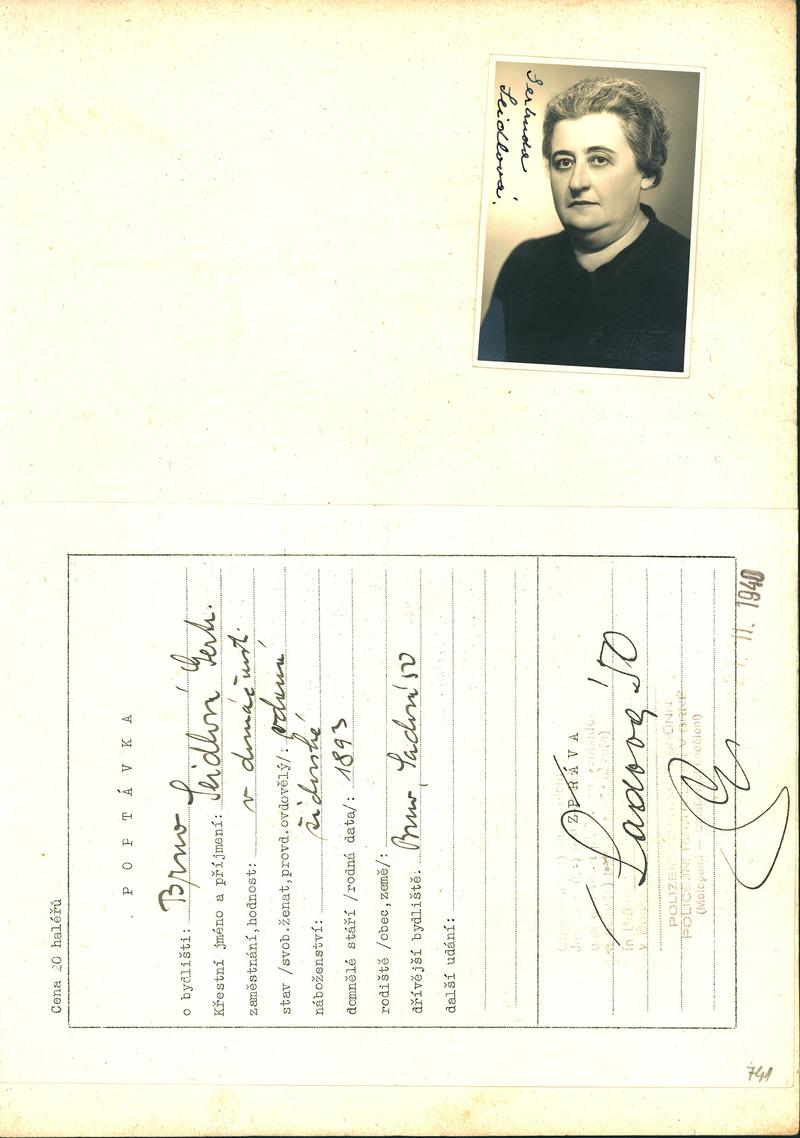 Gertruda
Seidlová.
Cena 20 haléřů
POPTÁVKA
o bydlišti: Brno
Křestní jméno a příjmení: Seidlová Gertr.
zaměstnání,hodnost: v domácnosti
stav /svob.ženat,provd.ovdovělý/: vdaná
náboženství: židovské
domnělé stáří /rodná data/: 1893
rodiště /obec,země/:
dřívější bydliště: Brno, Sadová 50
další udání:
ZPRÁVA
Sadová 50
11. 1940
741